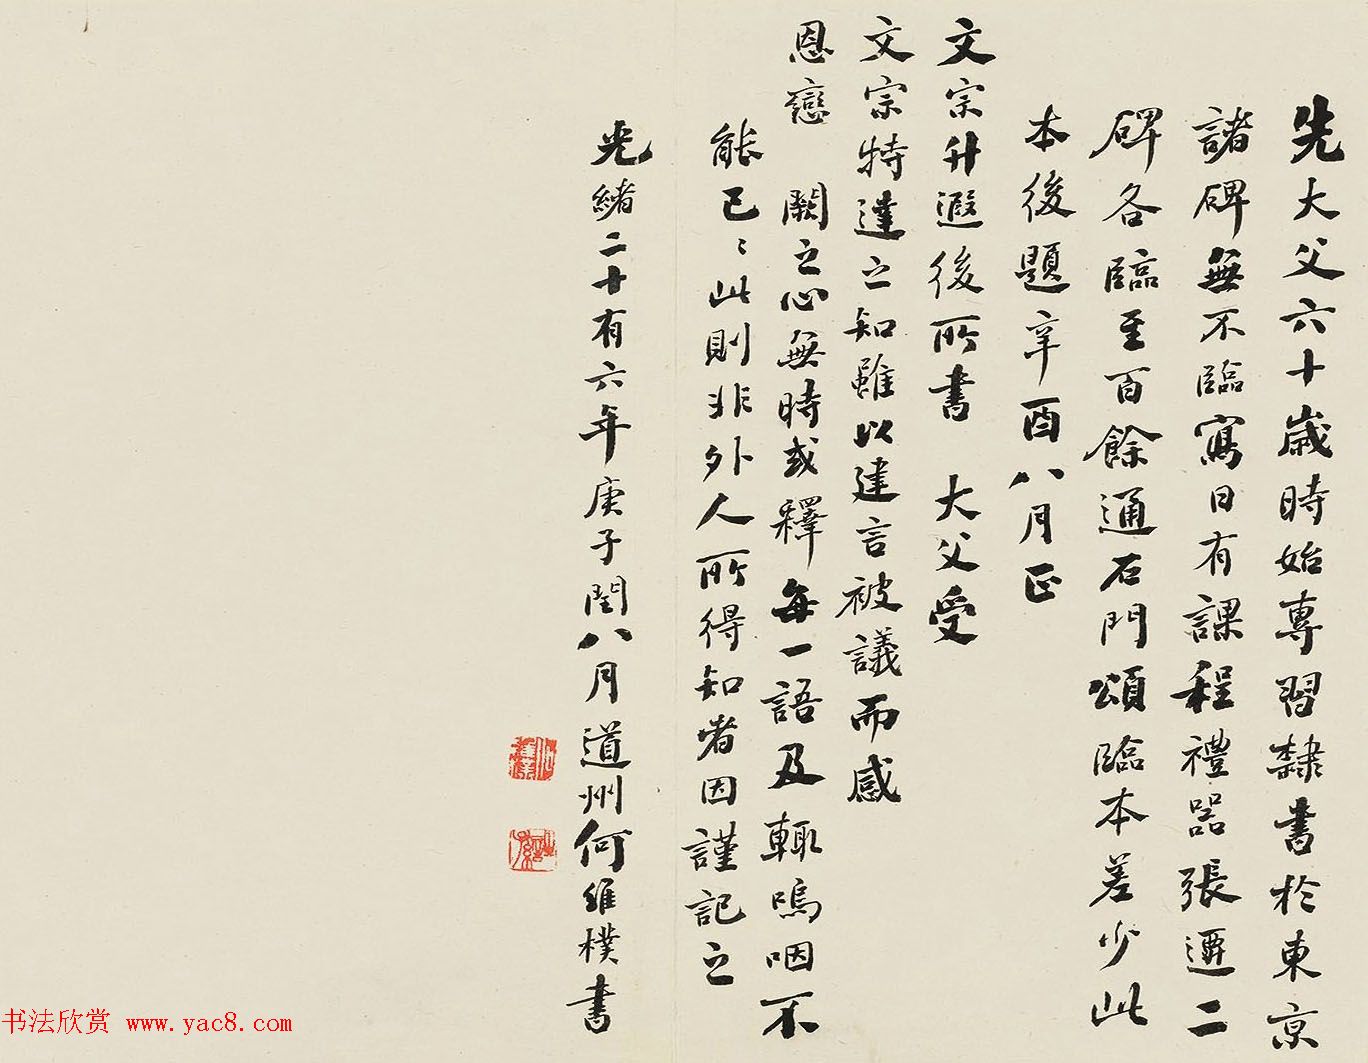 先大父六十歲時始專習隸書於東京
諸碑無不臨寫日有課程禮器張遷二
碑各臨至百餘通石門頌臨本差少此
本後題辛酉八月正
文宗升遐後所書 大父受
文宗特達之知雖以建言被議而感
恩戀 闕之心無時或釋每一語及輒嗚咽不
能已〻此則非外人所得知者因謹記之
光緒二十有六年庚子閏八月道州何維樸書
书法欣赏 www.yac8.com